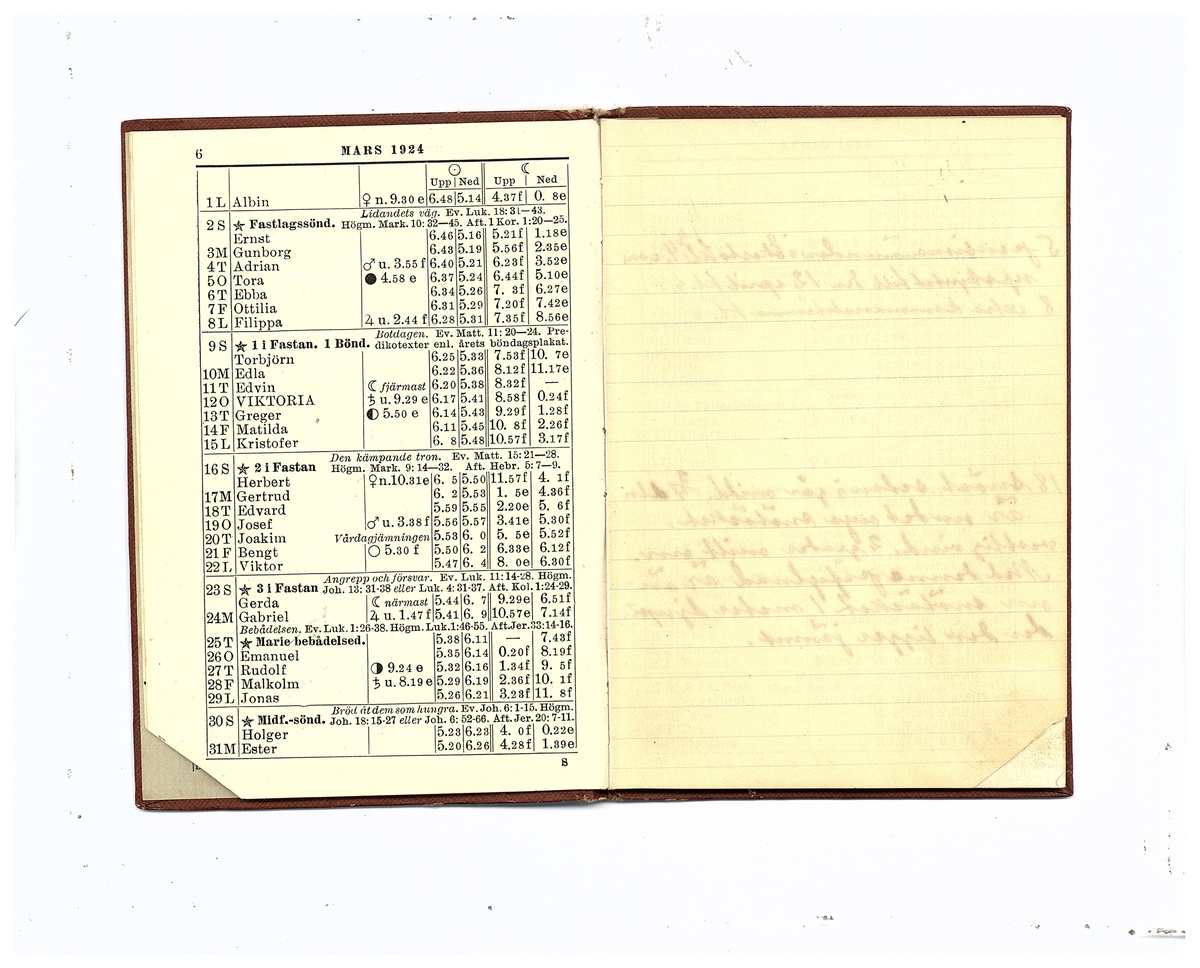 6 MARS 1924
☉ ☾
Upp Ned Upp Ned
1 L Albin ♀ n. 9.30 e 6.48 5.14 4.37f 0. 8e
Lidandets väg. Ev. Luk. 18: 31—43.
2 S ★ Fastlagssönd. Högm. Mark. 10: 32—45. Aft. 1 Kor. 1:20—25.
Ernst 6.46 5.16 5.21f 1.18e
3M Gunborg 6.43 5.19 5.56f 2.35e
4 T Adrian ♂ u. 3.55 f 6.40 5.21 6.23f 3.52e
5 O Tora ● 4.58 e 6.37 5.24 6.44f 5.10e
6 T Ebba 6.34 5.26 7. 3f 6.27e
7 F Ottilia 6.31 5.29 7.20f 7.42e
8 L Filippa ♃ u. 2.44 f 6.28 5.31 7.35f 8.56e
Botdagen. Ev. Matt. 11: 20—24. Pre-
9 S ★ 1 i Fastan. 1 Bönd. dikotexter enl. årets böndagsplakat.
Torbjörn 6.25 5.33 7.53f 10. 7e
10M Edla 6.22 5.36 8.12f 11.17e
11 T Edvin ☾ fjärmast 6.20 5.38 8.32f —
12 O VIKTORIA ♄ u. 9.29 e 6.17 5.41 8.58f 0.24f
13 T Greger ◐ 5.50 e 6.14 5.43 9.29f 1.28f
14 F Matilda 6.11 5.45 10. 8f 2.26f
15 L Kristofer 6. 8 5.48 10.57f 3.17f
Den kämpande tron. Ev. Matt. 15: 21—28.
16 S ★ 2 i Fastan Högm. Mark. 9: 14—32. Aft. Hebr. 5: 7—9.
Herbert ♀ n. 10.31e 6. 5 5.50 11.57f 4. 1f
17M Gertrud 6. 2 5.53 1. 5e 4.36f
18 T Edvard 5.59 5.55 2.20e 5. 6f
19 O Josef ♂ u. 3.38 f 5.56 5.57 3.41e 5.30f
20 T Joakim Vårdagjämningen 5.53 6. 0 5. 5e 5.52f
21 F Bengt ○ 5.30 f 5.50 6. 2 6.33e 6.12f
22 L Viktor 5.47 6. 4 8. 0e 6.30f
Angrepp och försvar. Ev. Luk. 11: 14-28. Högm.
23 S ★ 3 i Fastan Joh. 13: 31-38 eller Luk. 4: 31-37. Aft. Kol. 1:24-29.
Gerda ☾ närmast 5.44 6. 7 9.29e 6.51f
24M Gabriel ♃ u. 1.47 f 5.41 6. 9 10.57e 7.14f
Bebådelsen. Ev. Luk. 1:26-38. Högm. Luk. 1:46-55. Aft. Jer. 33:14-16.
25 T ★ Marie bebådelsed. 5.38 6.11 — 7.43f
26 O Emanuel 5.35 6.14 0.20f 8.19f
27 T Rudolf ◑ 9.24 e 5.32 6.16 1.34f 9. 5f
28 F Malkolm ♄ u. 8.19 e 5.29 6.19 2.36f 10. 1f
29 L Jonas 5.26 6.21 3.23f 11. 8f
Bröd åt dem som hungra. Ev. Joh. 6: 1-15. Högm.
30 S ★ Midf.-sönd. Joh. 18: 15-27 eller Joh. 6: 52-66. Aft. Jer. 20: 7-11.
Holger 5.23 6.23 4. 0f 0.22e
31M Ester 5.20 6.26 4.28f 1.39e
S